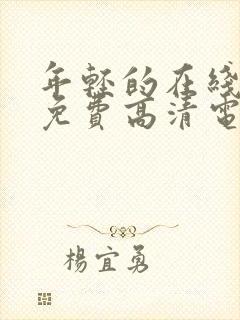 年轻的在线
免費高清電
楊宜勇